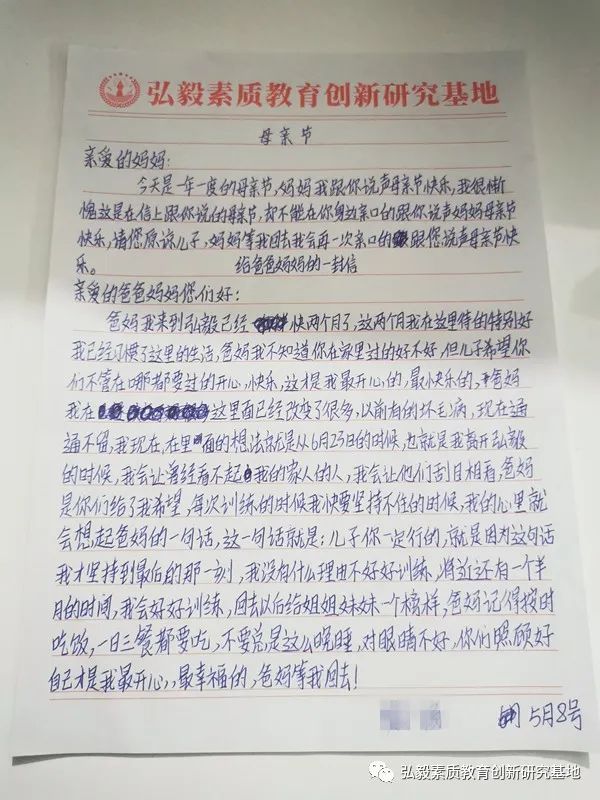 弘毅素质教育创新研究基地
母亲节
亲爱的妈妈:
今天是一年一度的母亲节,妈妈我跟你说声母亲节快乐,我很惭
愧这是在信上跟你说的母亲节,却不能在你身边亲口的跟你说声妈妈母亲节
快乐,请您原谅儿子,妈妈等我回去我会再一次亲口的跟您说声母亲节快
乐。 给爸爸妈妈的一封信
亲爱的爸爸妈妈您们好:
爸妈我来到弘毅已经快两个月了,这两个月我在这里待的特别好
我已经习惯了这里的生活,爸妈我不知道你在家里过的好不好,但儿子希望你
们不管在哪都要过的开心,快乐,这才是我最开心的,最快乐的,爸妈
我在这里面已经改变了很多,以前有的坏毛病,现在通
通不留,我现在,在里面的想法就是从6月23日的时候,也就是我离开弘毅
的时候,我会让曾经看不起我的家人的人,我会让他们刮目相看,爸妈
是你们给了我希望,每次训练的时候我快要坚持不住的时候,我的心里就
会想起爸妈的一句话,这一句话就是:儿子你一定行的,就是因为这句话
我才坚持到最后的那一刻,我没有什么理由不好好训练,将近还有一个半
月的时间,我会好好训练,回去以后给姐姐妹妹一个榜样,爸妈记得按时
吃饭,一日三餐都要吃,不要总是这么晚睡,对眼睛不好,你们照顾好
自己才是我最开心,最幸福的,爸妈等我回去!
5月8号
弘毅素质教育创新研究基地